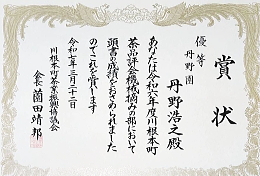 賞状
優等
丹野園
丹野浩之殿
あなたは令和六年度川根本町
茶品評会機械摘みの部において
頭書の成績をおさめられました
のでこれを賞します
令和七年三月二十二日
川根本町茶業振興協議会
会長 薗田靖邦